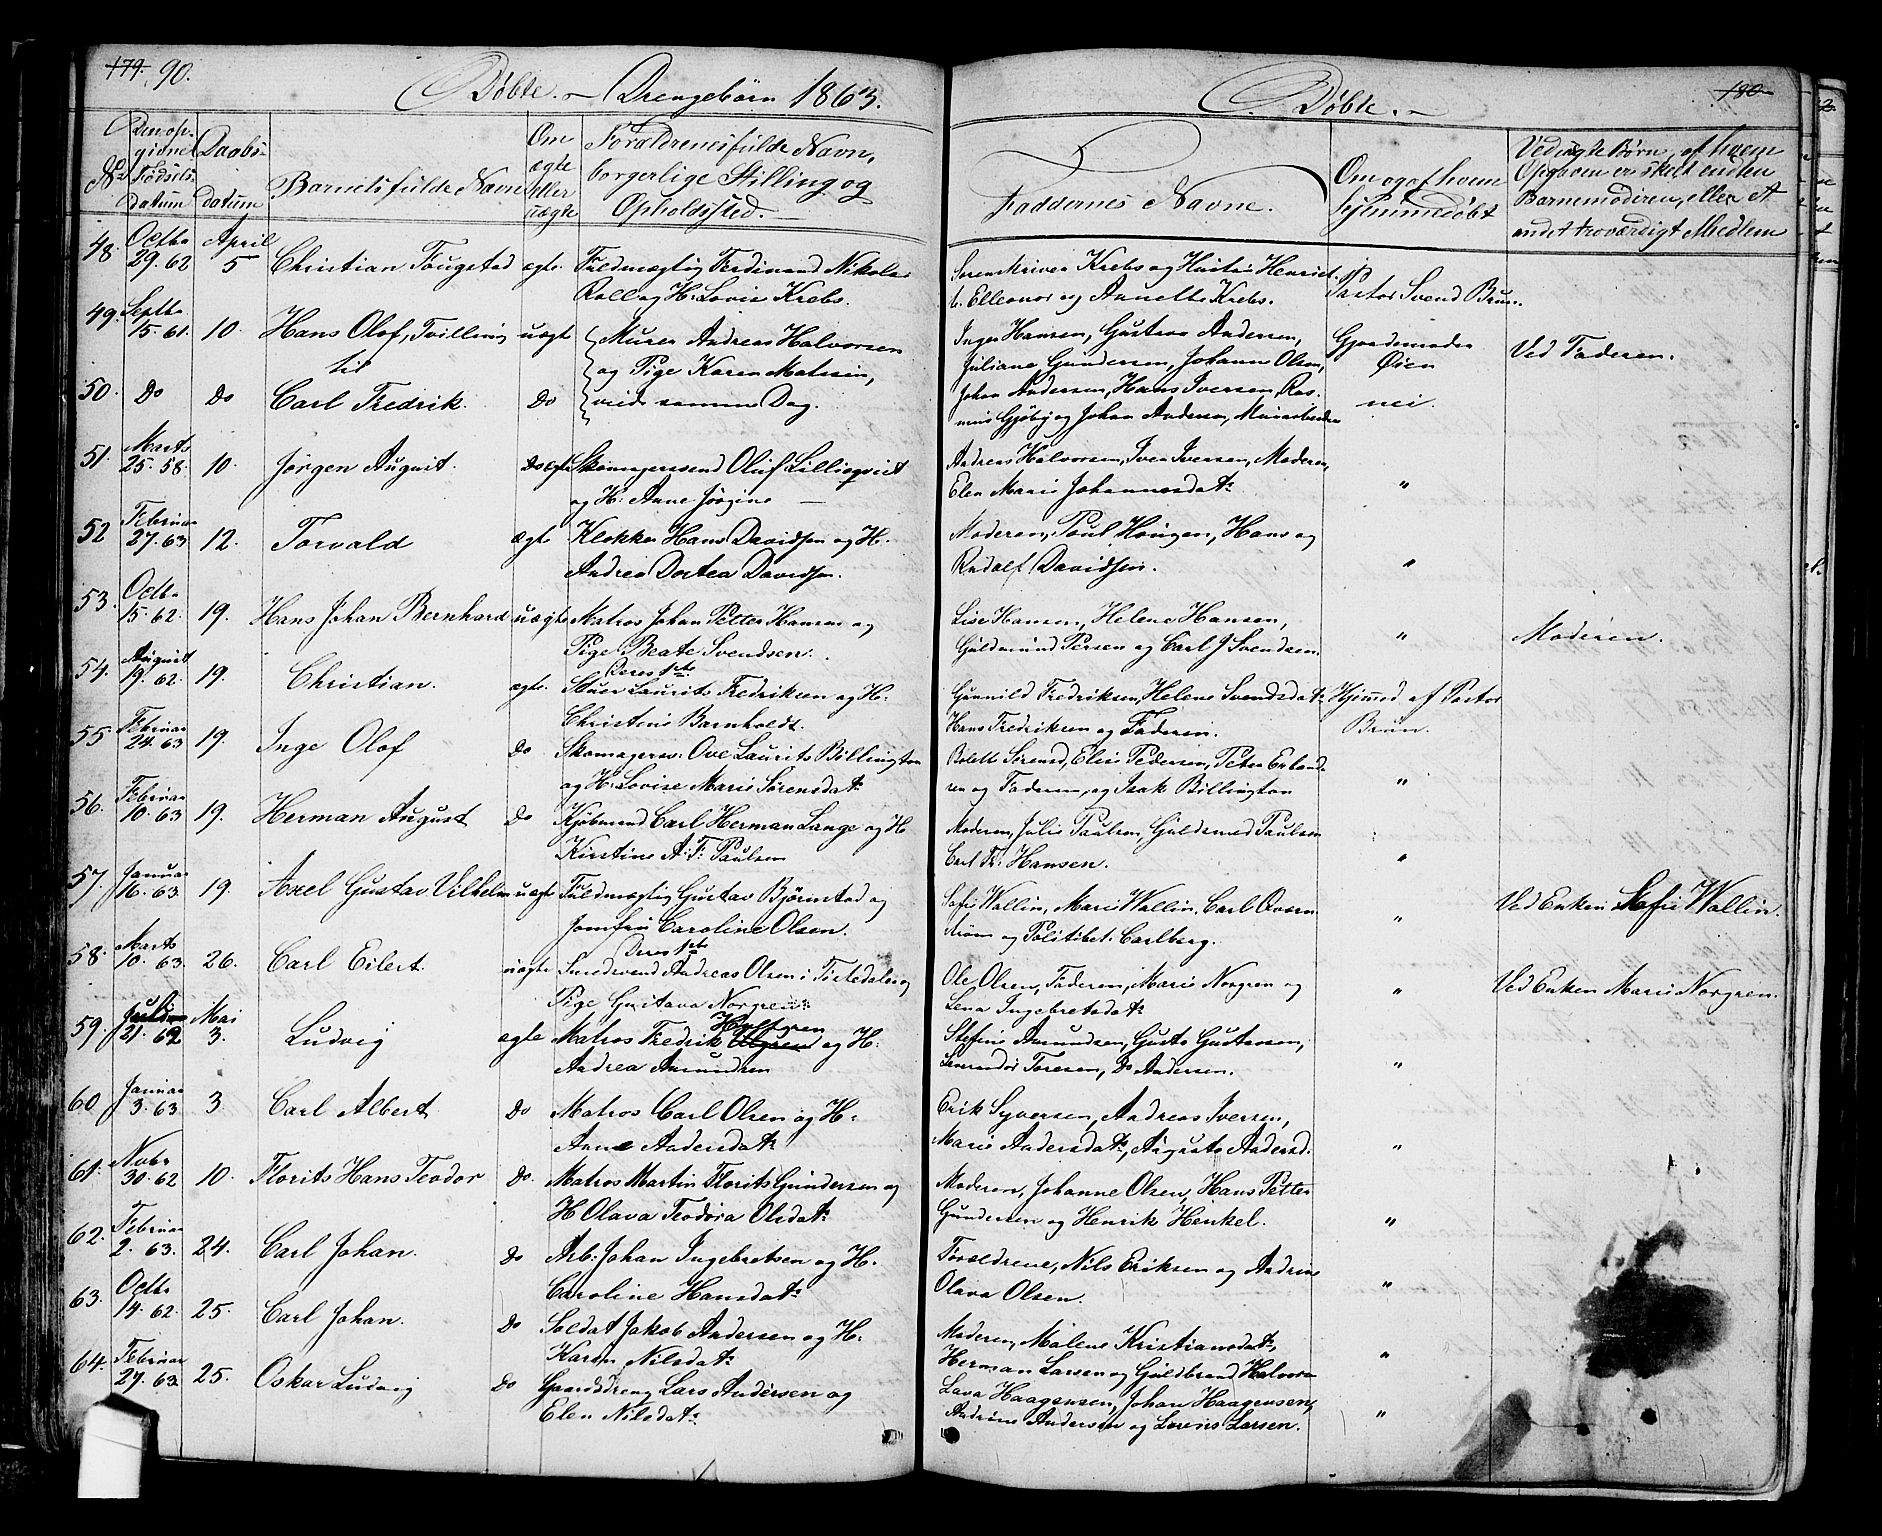 179. 90.
Døbte. – Drengebørn 1863.
No
Den op-
givne
Fødsels-
datum
Daabs-
datum
Barnets fulde Navn
Om
ægte
eller
uægte
Forældrenes fulde Navn,
borgerlige Stilling og
Opholdssted.
48. Octbr 29. 62 April 5 Christian Fougstad ægte. Fuldmægtig Ferdinand Nikolai
Roll og H: Lovise Krebs.
49. Septbr 15. 61. 10. Hans Olof, Tvilling uægt Murer Andreas Halvorsen
til og Pige Karen Matisin,
50. Do Do Carl Fredrik. Do viede samme Dag.
51. Marts 25. 58. 10. Jørgen August. Do ægte Skomagersvend Oluf Lillieqvist
og H: Anne Jørgine —
52 Februar 27. 63 12. Torvald ægte Klokker Hans Davidsen og H:
Andrea Dortea Davidsen.
53. Octbr 15. 62. 19. Hans Johan Bernhard uægte Matros Johan Petter Hansen og
Pige Beate Svendsen.
Deres 1ste
54. August 19. 62. 19. Christian. ægte. Stuer Laurits Fredriksen og H:
Christine Barnholdt.
55 Februar 24. 63 19. Inge Olof Do Skomagersv: Ove Laurits Billington
og H: Lovise Marie Sørensdatr
56. Februar 10. 63 19. Herman August Do Kjøbmand Carl Herman Lange og H
Kirstine A: F: Paulsen
57. Januar 16. 63 19. Axel Gustav Vilhelm uægte Fuldmægtig Gustav Bjørnstad og
Jomfru Caroline Olsen.
Deres 1ste
58. Marts 10. 63. 26. Carl Eilert. uægte Smedsvend Andreas Olsen i Tistedalen og
Pige Gustava Norgren
59. 21. 62 Mai 3. Ludvig ægte Matros Fredrik Hultgren og H:
Andrea Amundsen
60 Januar 3. 63 3 Carl Albert Do Matros Carl Olsen og H:
Anne Andersdatr
61. Novbr 30. 62 10. Florits Hans Teodor Do. Matros Martin Florits Gundersen og
H Olava Teodora Olsdatr
62. Februar 2. 63. 24. Carl Johan. Do Arb: Johan Ingebretsen og H:
Caroline Hansdatr
63. Octbr 14. 62. 25. Carl Johan. Do Soldat Jakob Andersen og H:
Karen Nilsdatr
64. Februar 27. 63 25. Oskar Ludvig Do Gaardsdreng Lars Andersen og
Elen Nilsdatr
180
Døbte. –
Faddernes Navne.
Om og af hvem
hjemmedøbt
Ved uægte Børn, af hvem
Opgaven er skeet enten
Barnemoderen, eller A
andet troværdigt Medlem
Sorenskriver Krebs og Hustru Henriet-
te Elleonor og Annette Krebs. Pastor Svend Brun.
Inger Hansen, Gustava Andersen, Gjordemoder
Juliane Gundersen, Johanne Olsen, Øien Ved Faderen.
Johan Andersen, Hans Iversen, Ras- nei.
mus Gjøby og Johan Andersen, Murarbeider
Andreas Halvorsen, Iver Iversen, Moderen,
Elen Marie Johannesdatr "
Moderen, Poul Haugen, Hans og
Rudolf Davidsen. "
Lise Hansen, Helene Hansen,
Guldmund Persen og Carl J Svendsen. " Moderen.
Gunnild Fredriksen, Helene Svendsdatr Hjemmed af Pastor
Hans Fredriksen og Faderen. Brun.
Bolett Sørensd, Elise Pedersen, Peter Erland-
sen og Faderen, og Isak Billington "
Moderen, Julie Paulsen, Guldsmed Paulsen
Carl Fr: Hansen. "
Sofie Wallin, Marie Wallin, Carl Overn
strøm og Politibet: Carlberg. " Ved Enken Sofie Wallin.
Ole Olsen, Faderen, Marie Norgren og
Lena Ingebretsdatr " Ved Enken Marie Norgren.
Stefine Amundsen, Gusta Gustavsen,
Leverandør Toresen, Do Andersen. "
Erik Syversen, Andreas Iversen,
Marie Andersdatr, Augusta Andersd. "
Moderen, Johanne Olsen, Hans Petter
Gundersen og Henrik Henkel. "
Forældrene, Nils Eriksen og Andrine
Olava Olsen. "
Moderen, Malene Kristiansdatr,
Herman Larsen og Guldbrand Halvorsn "
Lava Haagensen, Johan Haagensen,
Andrine Andersen og Lorens Larsen. "